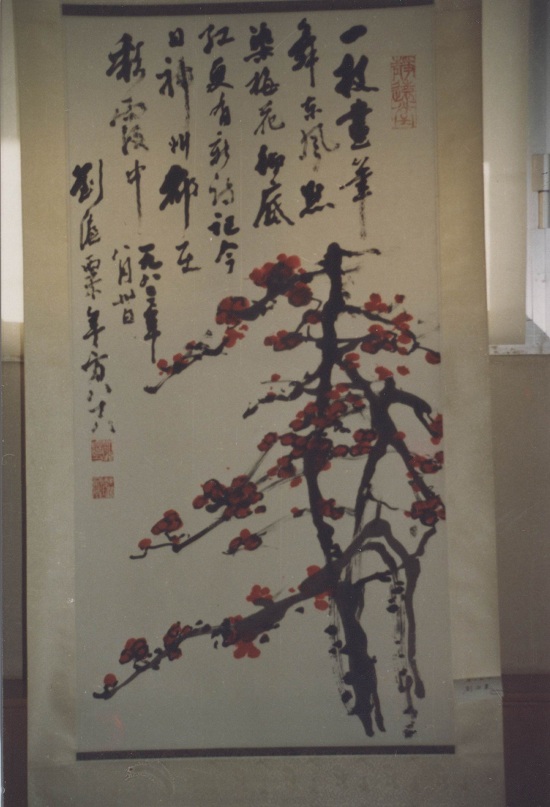 一枝畫筆
舞東風點
染梅花徹底
紅更有新詩記今
日神州都在
彩霞中
一九八三年
八月廿日
劉海粟年方八十八